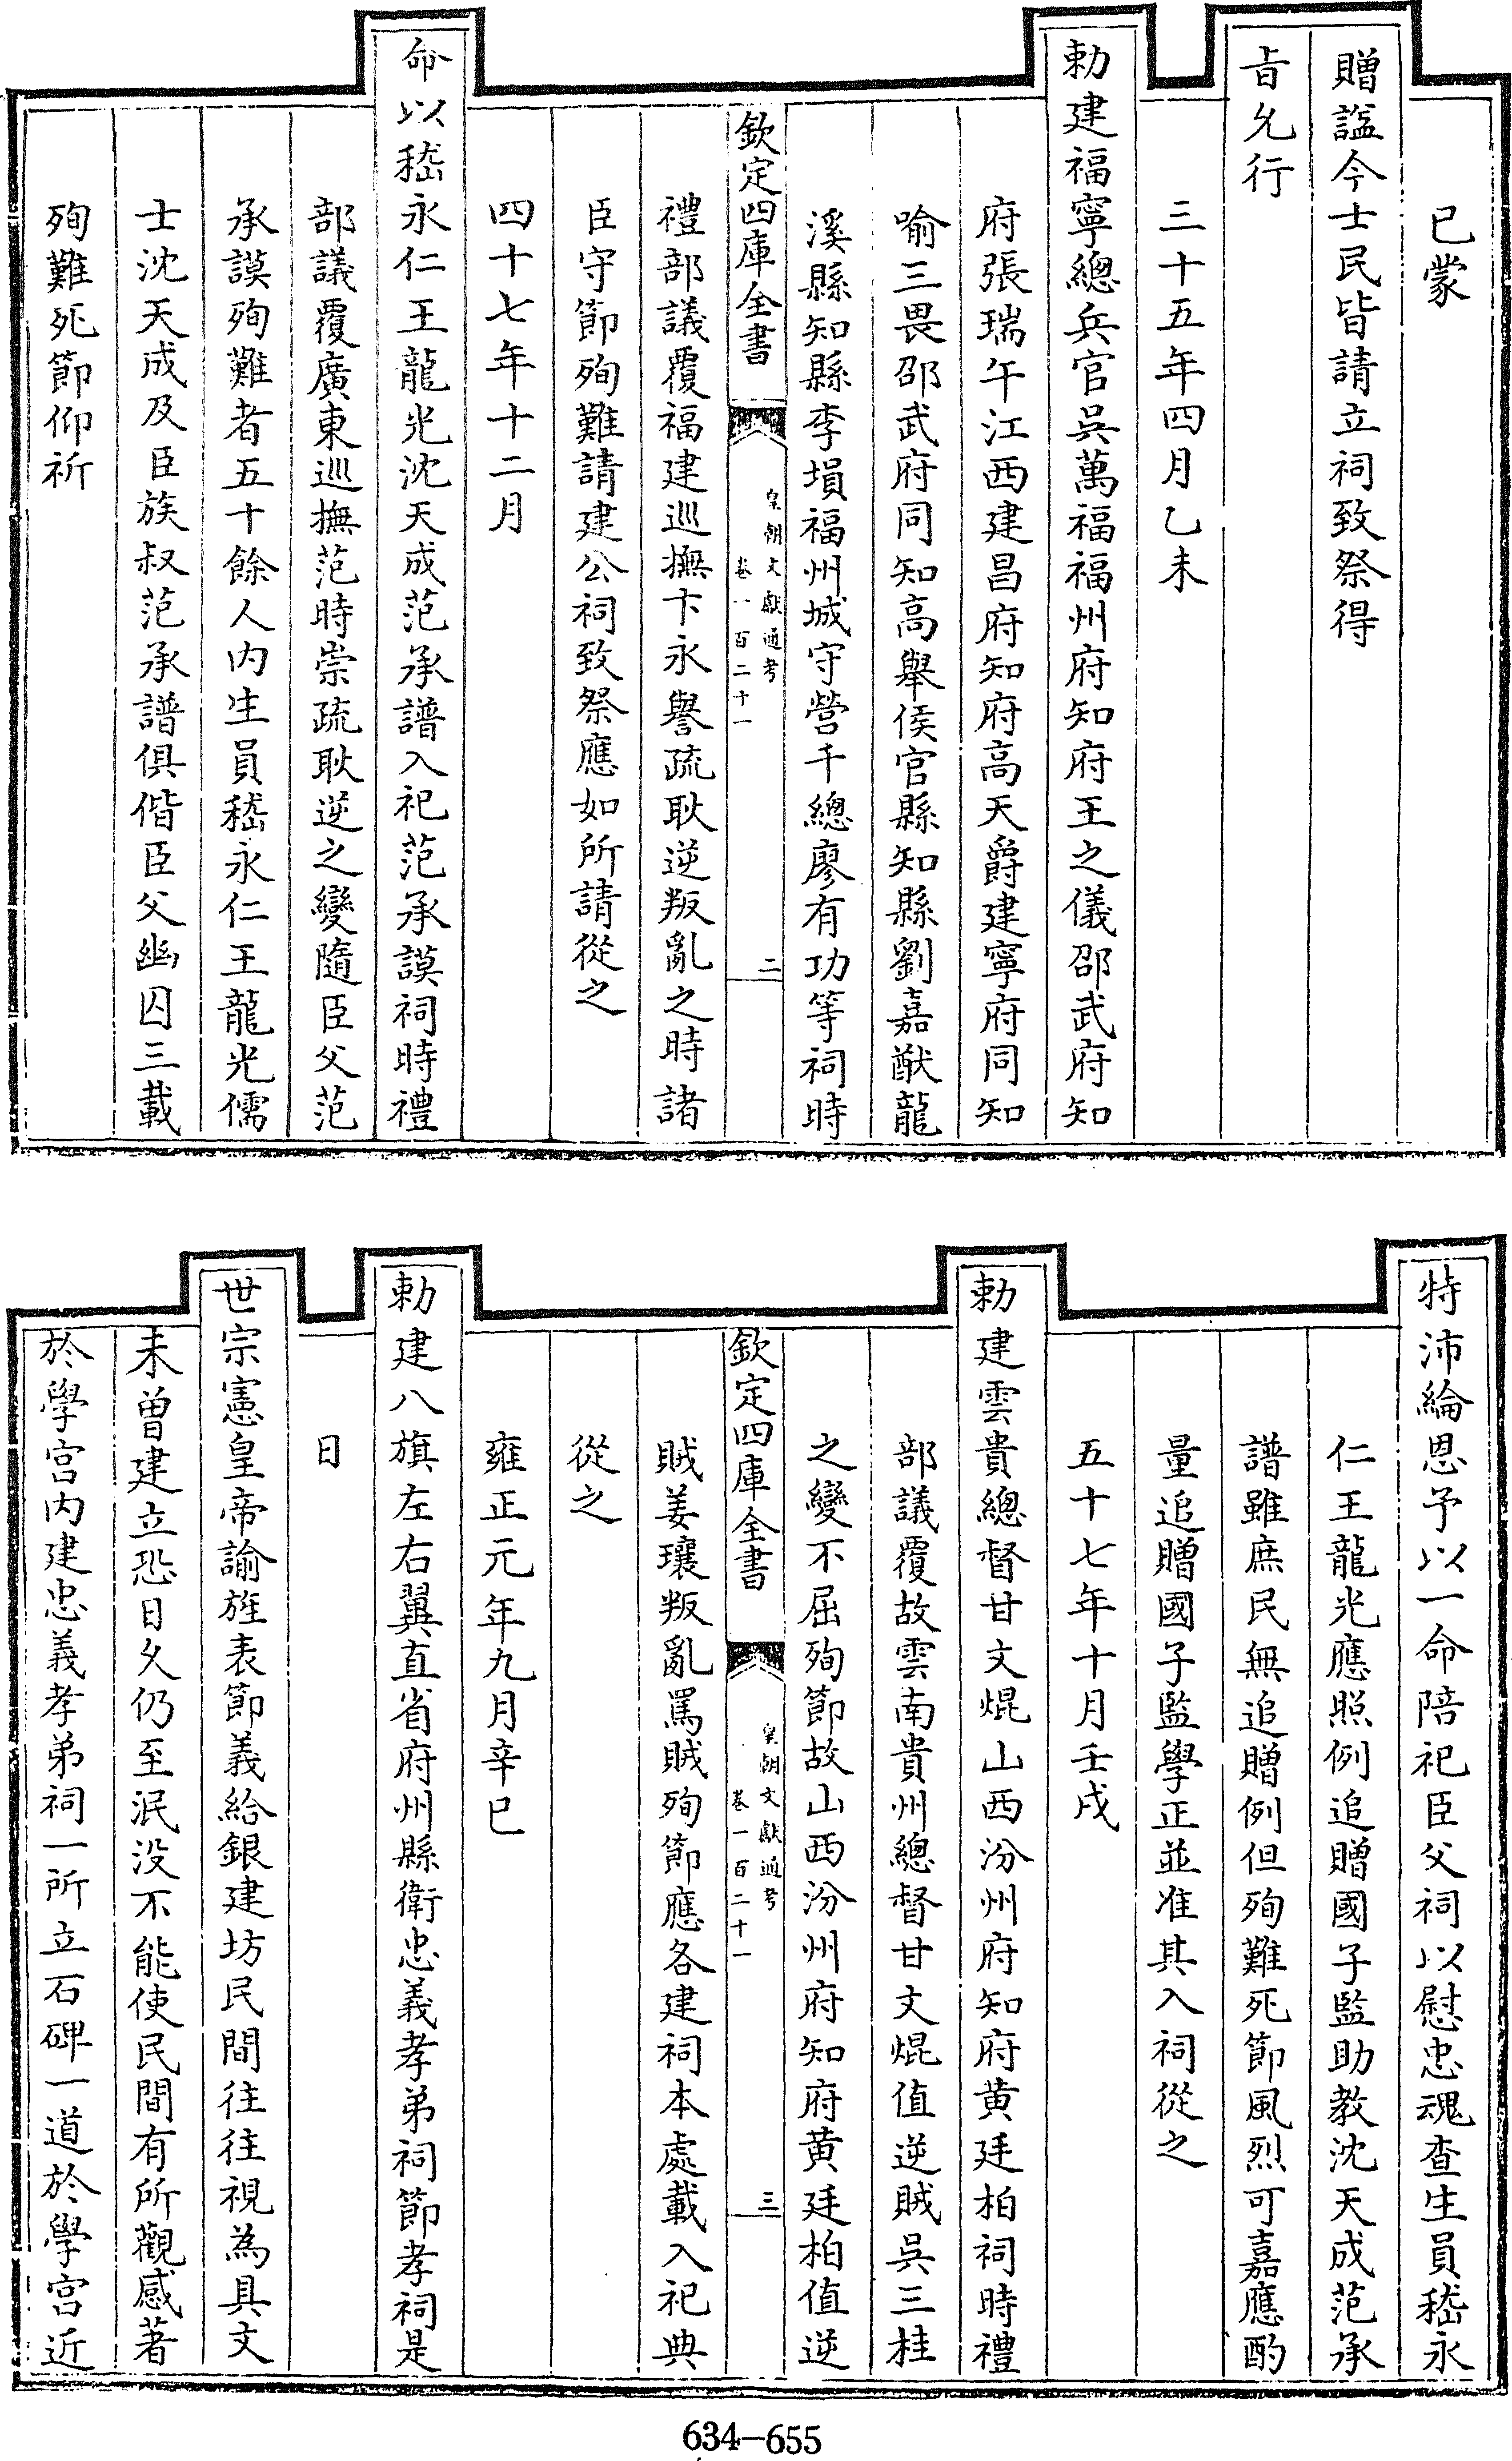 已蒙
贈諡今士民皆請立祠致祭得
旨允行
三十五年四月乙未
勅建福寧總兵官吳萬福福州府知府王之儀邵武府知
府張瑞午江西建昌府知府高天爵建寧府同知
喻三畏邵武府同知高舉侯官縣知縣劉嘉猷龍
溪縣知縣李塤福州城守營千總廖有功等祠時
欽定四庫全書
皇朝文獻通考
卷一百二十一
二
禮部議覆福建巡撫卞永譽疏耿逆叛亂之時諸
臣守節殉難請建公祠致祭應如所請從之
四十七年十二月
命以嵇永仁王龍光沈天成范承譜入祀范承謨祠時禮
部議覆廣東巡撫范時崇疏耿逆之變隨臣父范
承謨殉難者五十餘人內生員嵇永仁王龍光儒
士沈天成及臣族叔范承譜俱偕臣父幽囚三載
殉難死節仰祈
特沛綸恩予以一命陪祀臣父祠以慰忠魂查生員嵇永
仁王龍光應照例追贈國子監助教沈天成范承
譜雖庶民無追贈例但殉難死節風烈可嘉應酌
量追贈國子監學正並准其入祠從之
五十七年十月壬戌
勅建雲貴總督甘文焜山西汾州府知府黄廷柏祠時禮
部議覆故雲南貴州總督甘文焜值逆賊吳三桂
之變不屈殉節故山西汾州府知府黄廷柏值逆
欽定四庫全書
皇朝文獻通考
卷一百二十一
三
賊姜瓖叛亂罵賊殉節應各建祠本處載入祀典
從之
雍正元年九月辛巳
勅建八旗左右翼直省府州縣衛忠義孝弟祠節孝祠是
日
世宗憲皇帝諭旌表節義給銀建坊民間往往視為具文
未曾建立恐日久仍至泯没不能使民間有所觀感著
於學宮内建忠義孝弟祠一所立石碑一道於學宮近
634-655